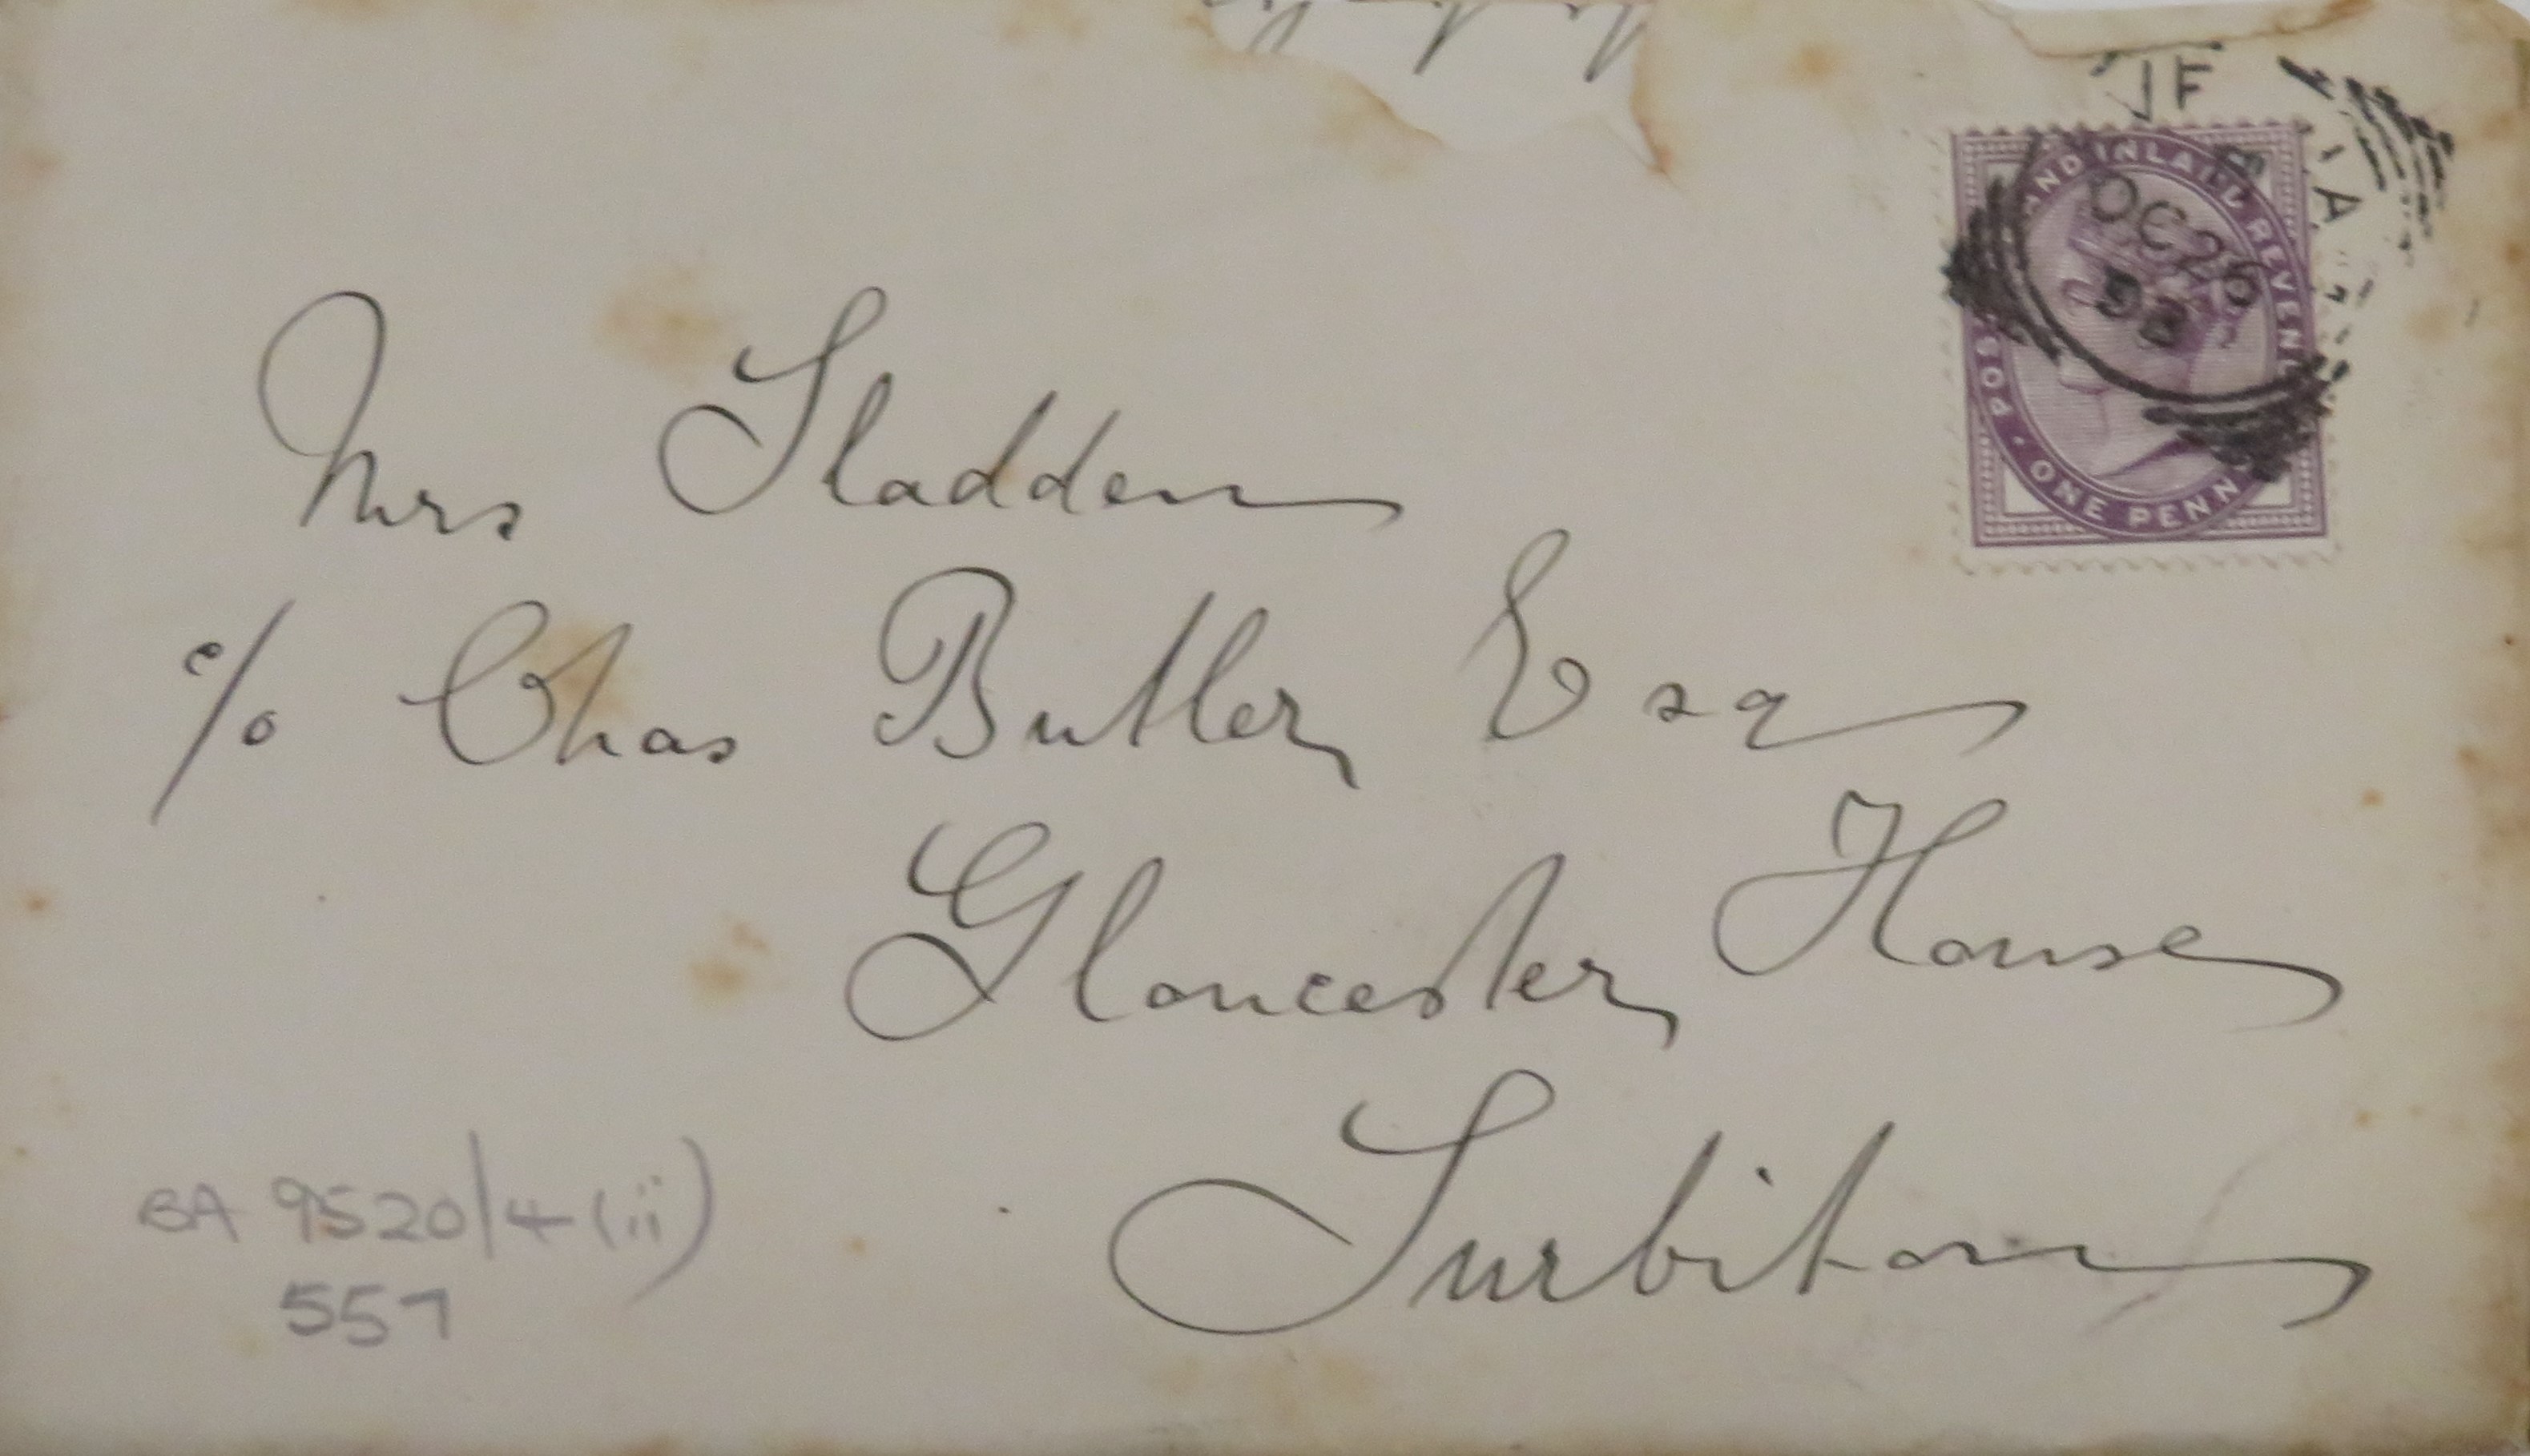 JF
A
POS AND INLAND REVENU
OC 26
98
ONE PENN
Mrs Sladden
c/o Chas Butler Esq
Gloucester House
Surbiton
BA 9520/4 (ii)
557